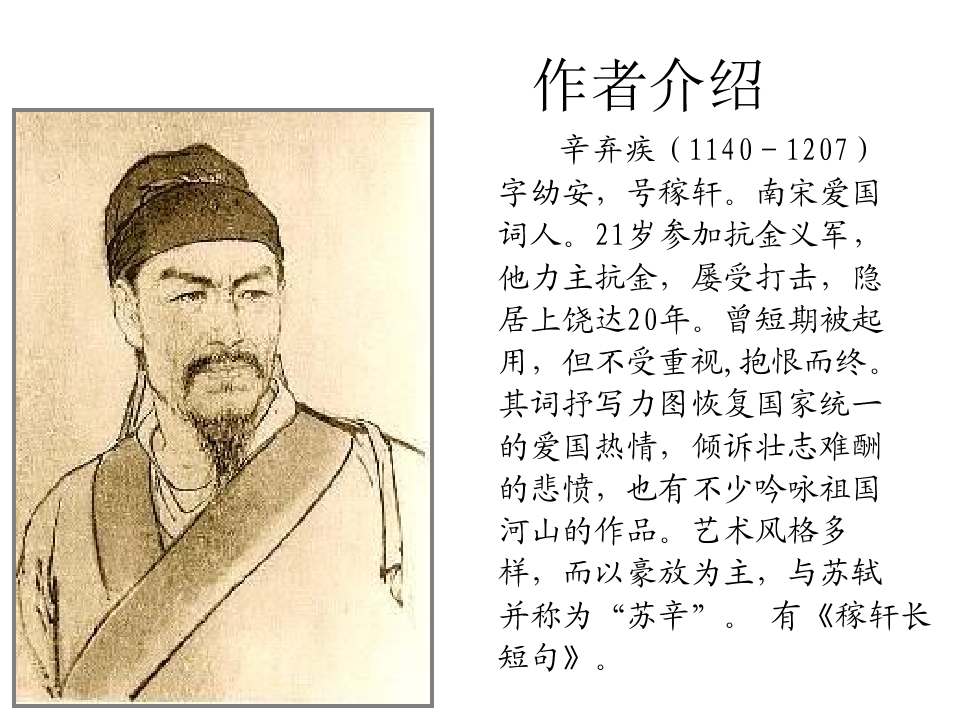 作者介绍
辛弃疾（1140－1207）
字幼安，号稼轩。南宋爱国
词人。21岁参加抗金义军，
他力主抗金，屡受打击，隐
居上饶达20年。曾短期被起
用，但不受重视,抱恨而终。
其词抒写力图恢复国家统一
的爱国热情，倾诉壮志难酬
的悲愤，也有不少吟咏祖国
河山的作品。艺术风格多
样，而以豪放为主，与苏轼
并称为“苏辛”。 有《稼轩长
短句》。